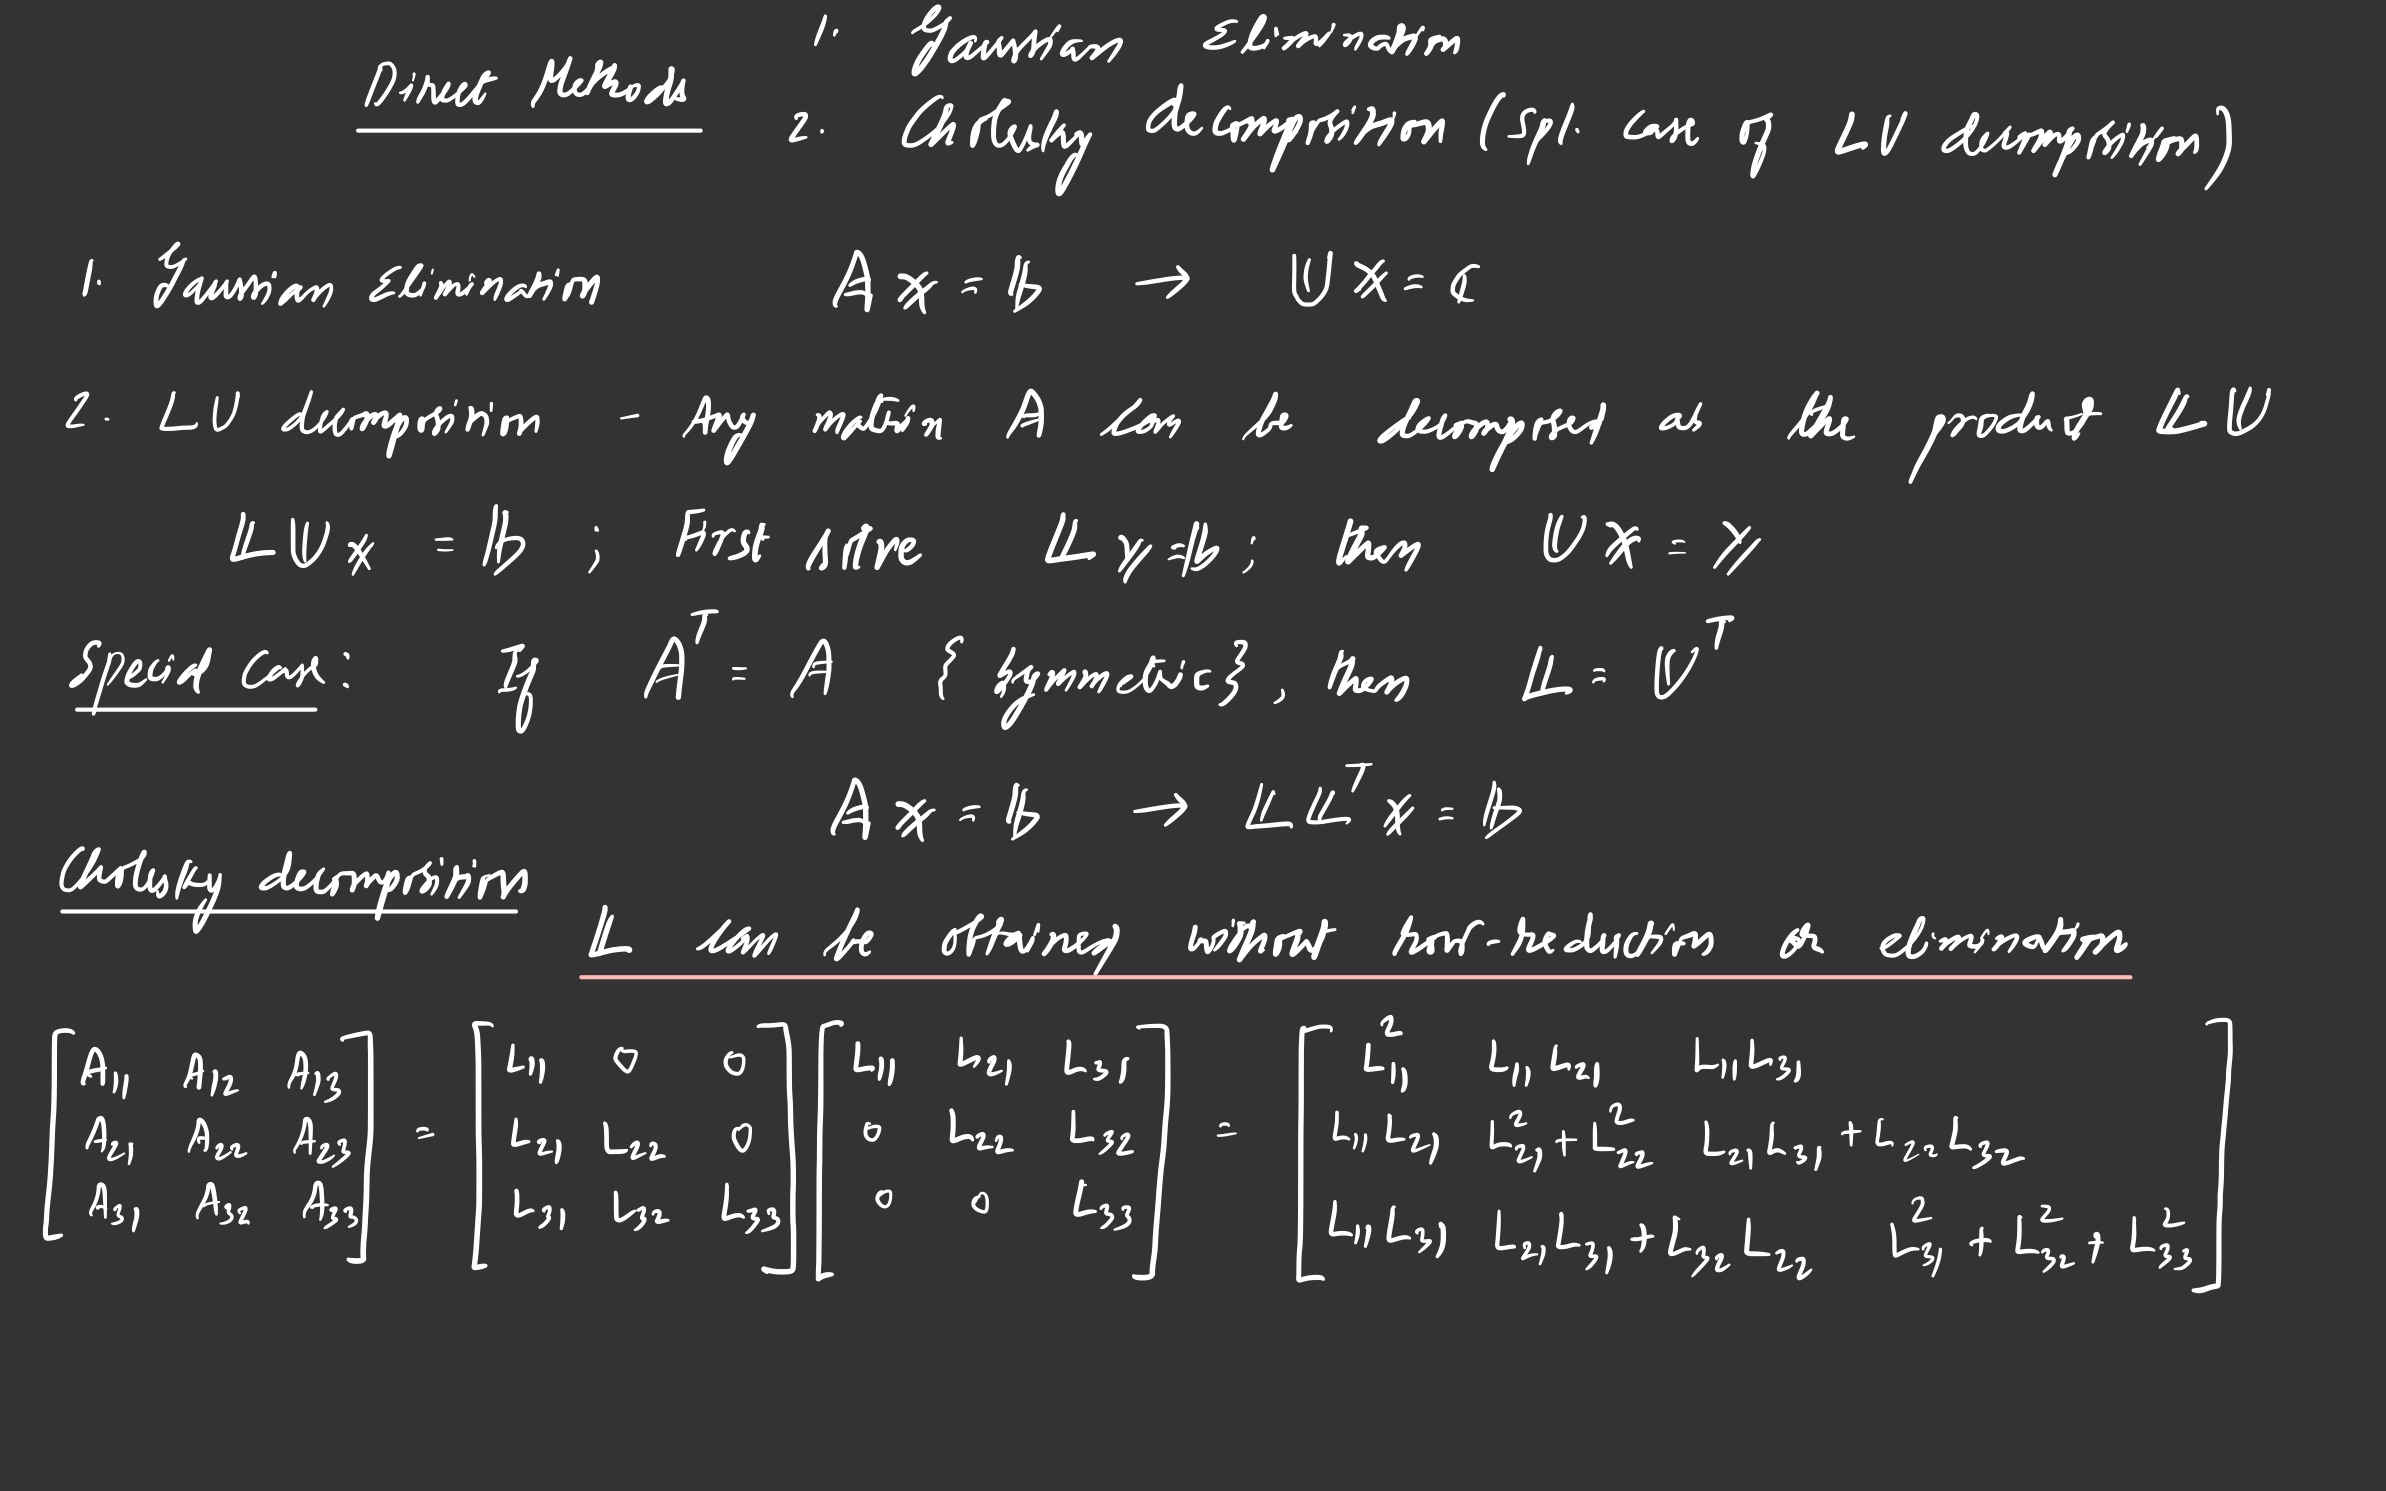 Direct Methods
1. Gaussian Elimination
2. Cholesky decomposition (Spl. case of LU decomposition)
1. Gaussian Elimination A x = b → U x = c
2. LU decomposition – Any matrix A can be decomposed as the product L U
L U x = b ; First solve L y = b ; then U x = y
Special Case: If A^T = A {symmetric}, then L = U^T
A x = b → L L^T x = b
Cholesky decomposition
L can be obtained without row-reduction or elimination
[A11 A12 A13] [L11 0 0] [L11 L21 L31] [L11² L11L21 L11L31]
[A21 A22 A23] = [L21 L22 0] [0 L22 L32] = [L11L21 L21²+L22² L21L31+L22L32]
[A31 A32 A33] [L31 L32 L33] [0 0 L33] [L11L31 L21L31+L32L22 L31²+L32²+L33²]